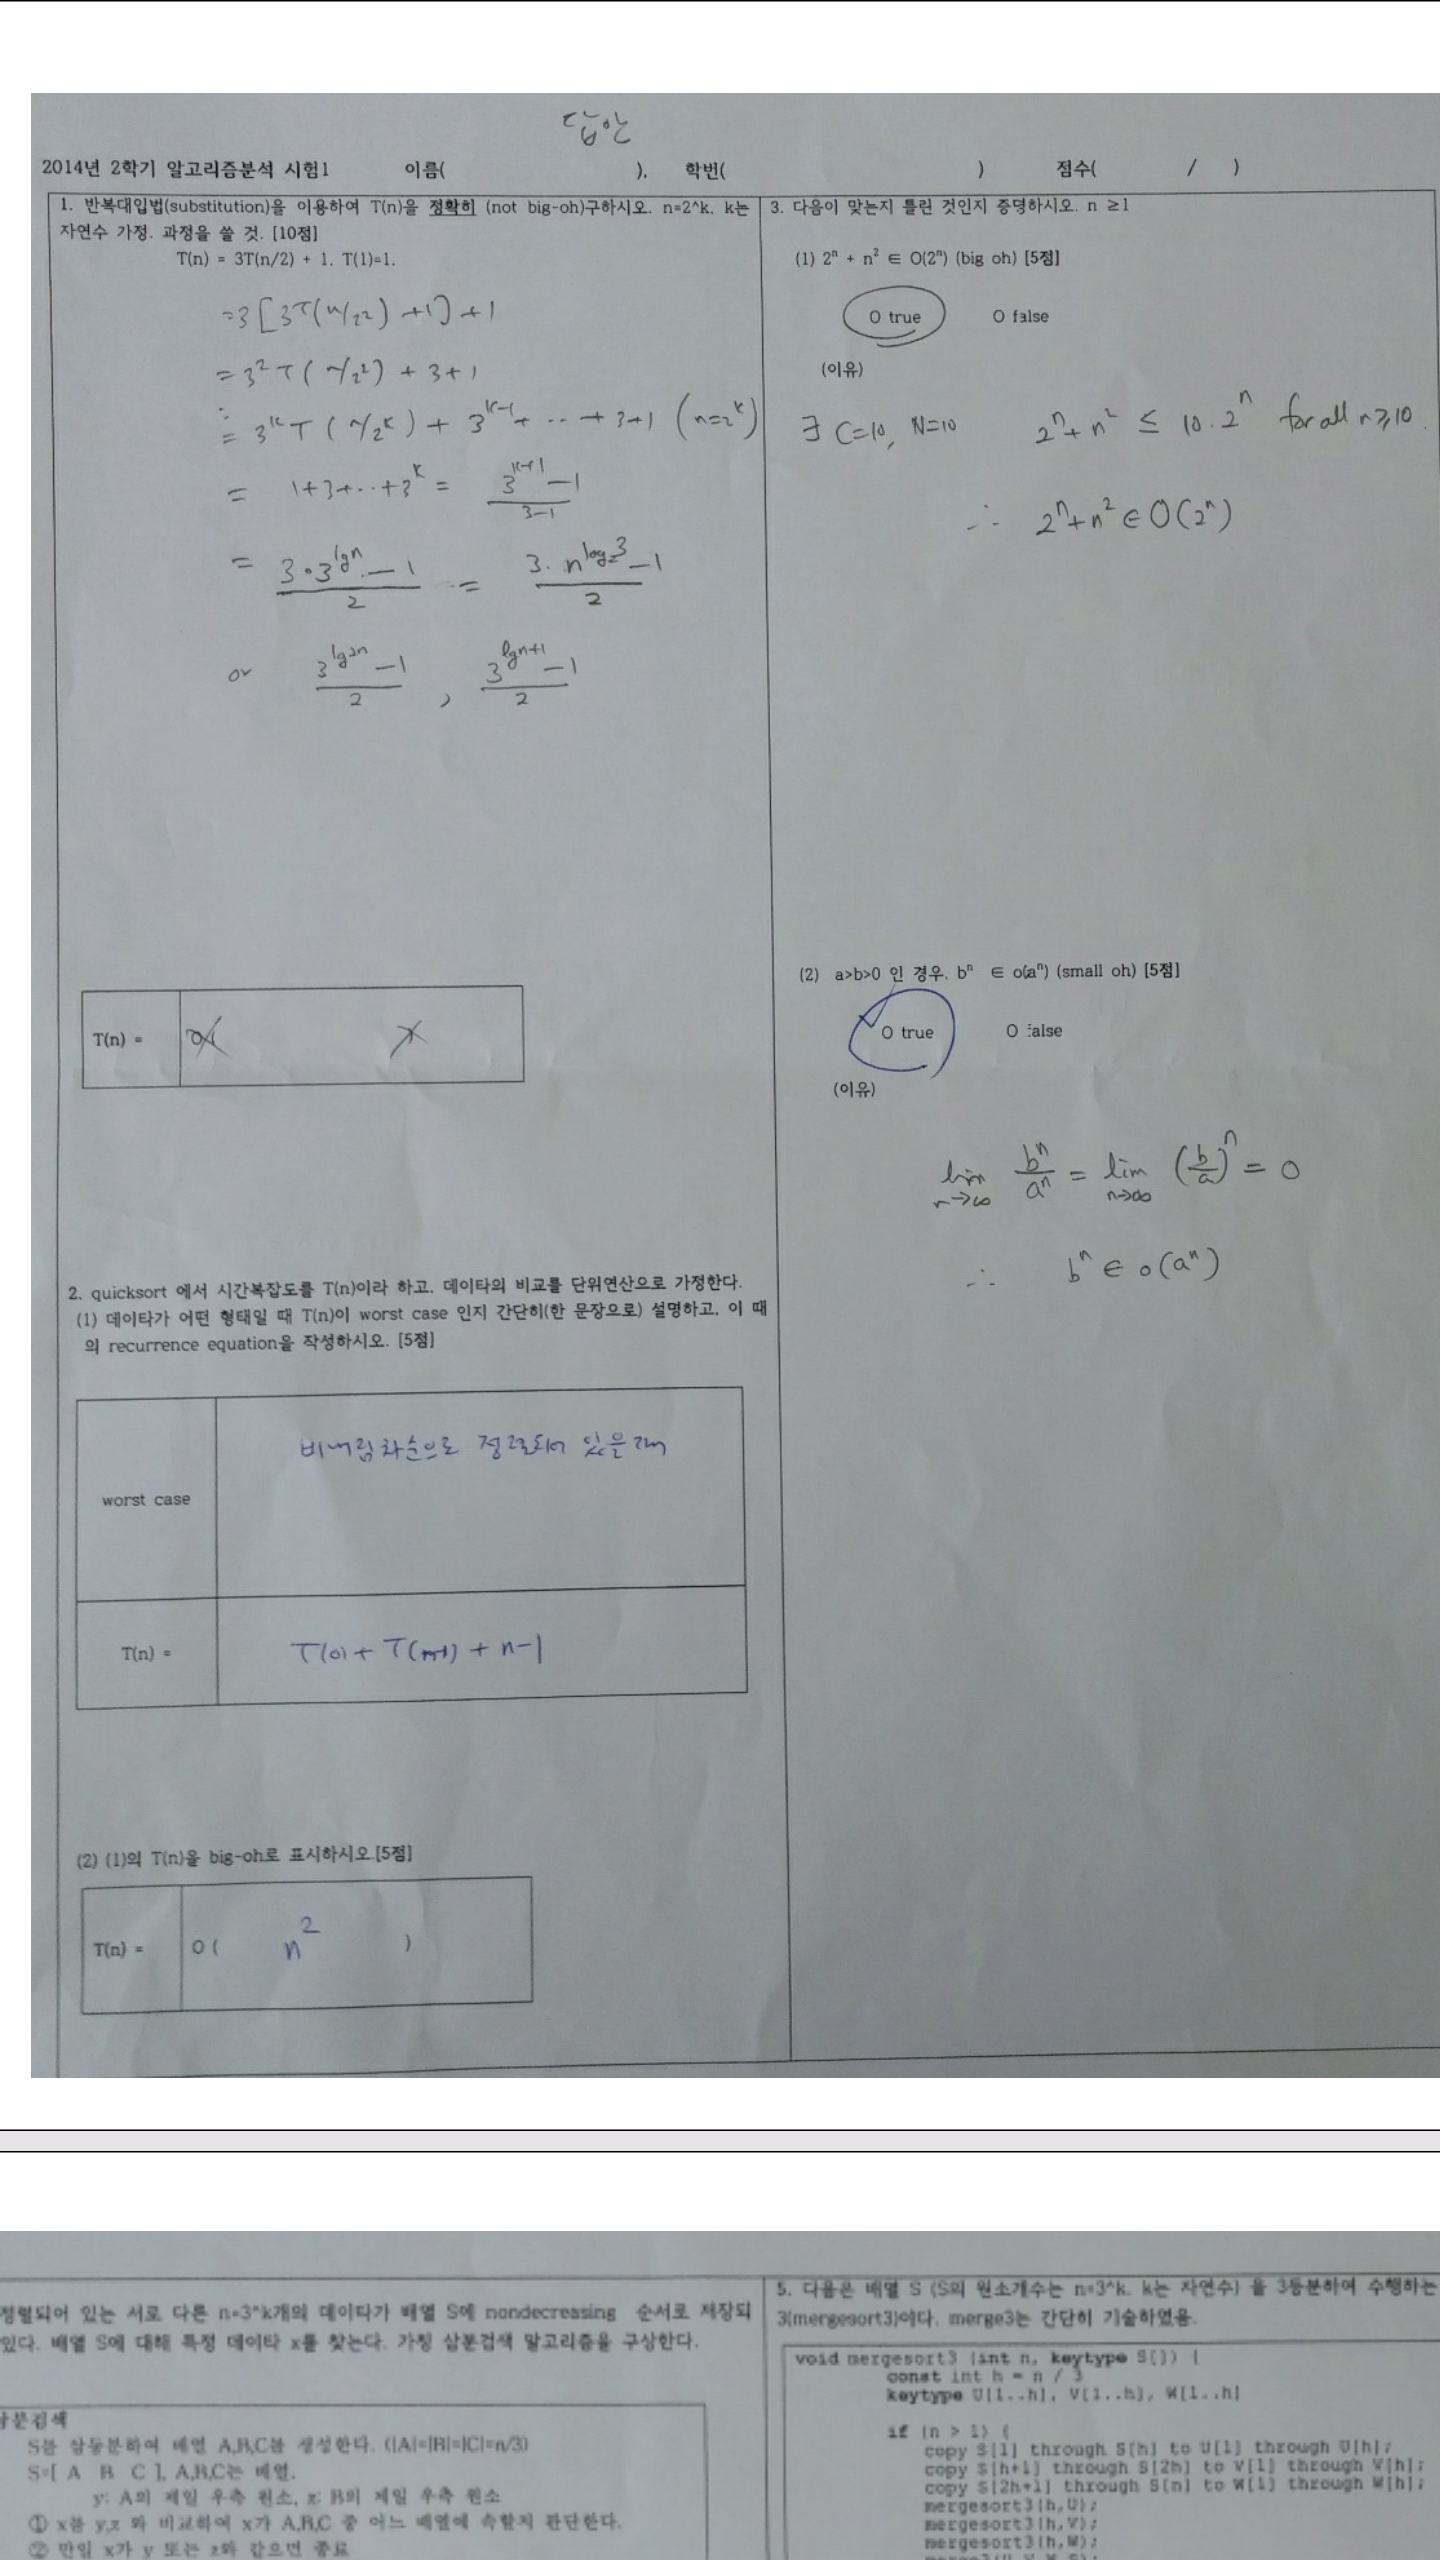 답안
2014년 2학기 알고리즘분석 시험1 이름( ), 학번( ) 점수( / )
1. 반복대입법(substitution)을 이용하여 T(n)을 정확히 (not big-oh)구하시오. n=2^k, k는
자연수 가정. 과정을 쓸 것. [10점]
T(n) = 3T(n/2) + 1, T(1)=1.
=3[3T(n/2²) +1] +1
=3²T(n/2²) + 3+1
⋮
= 3ᵏT(n/2ᵏ) + 3ᵏ⁻¹+ ··· + 3+1 (n=2ᵏ)
= 1+3+···+3ᵏ = (3ᵏ⁺¹-1)/(3-1)
= (3·3^(lgn) - 1)/2 = (3·n^(log₂3) - 1)/2
or (3^(lg2n) - 1)/2 , (3^(lgn+1) - 1)/2
T(n) =
2. quicksort 에서 시간복잡도를 T(n)이라 하고, 데이타의 비교를 단위연산으로 가정한다.
(1) 데이타가 어떤 형태일 때 T(n)이 worst case 인지 간단히(한 문장으로) 설명하고, 이 때
의 recurrence equation을 작성하시오. [5점]
worst case 비내림차순으로 정렬되어 있을때
T(n) = T(0) + T(n-1) + n-1
(2) (1)의 T(n)을 big-oh로 표시하시오.[5점]
T(n) = O ( n² )
3. 다음이 맞는지 틀린 것인지 증명하시오. n ≥1
(1) 2ⁿ + n² ∈ O(2ⁿ) (big oh) [5점]
O true O false
(이유)
∃ C=10, N=10 2ⁿ+n² ≤ 10·2ⁿ for all n≥10.
∴ 2ⁿ+n² ∈ O(2ⁿ)
(2) a>b>0 인 경우, bⁿ ∈ o(aⁿ) (small oh) [5점]
O true O false
(이유)
lim n→∞ bⁿ/aⁿ = lim n→∞ (b/a)ⁿ = 0
∴ bⁿ ∈ o(aⁿ)
정렬되어 있는 서로 다른 n=3^k개의 데이타가 배열 S에 nondecreasing 순서로 저장되
있다. 배열 S에 대해 특정 데이타 x를 찾는다. 가칭 삼분검색 알고리즘을 구상한다.
삼분검색
S를 삼등분하여 배열 A,B,C를 생성한다. (|A|=|B|=|C|=n/3)
S=[ A B C ], A,B,C는 배열.
y: A의 제일 우측 원소, z: B의 제일 우측 원소
① x를 y,z 와 비교하여 x가 A,B,C 중 어느 배열에 속할지 판단한다.
② 만일 x가 y 또는 z와 같으면 종료
5. 다음은 배열 S (S의 원소개수는 n=3^k, k는 자연수) 을 3등분하여 수행하는
3(mergesort3)이다. merge3는 간단히 기술하였음.
void mergesort3 (int n, keytype S[]) {
const int h = n / 3
keytype U[1..h], V[1..h], W[1..h]
if (n > 1) {
copy S[1] through S[h] to U[1] through U[h];
copy S[h+1] through S[2h] to V[1] through V[h];
copy S[2h+1] through S[n] to W[1] through W[h];
mergesort3(h,U);
mergesort3(h,V);
mergesort3(h,W);